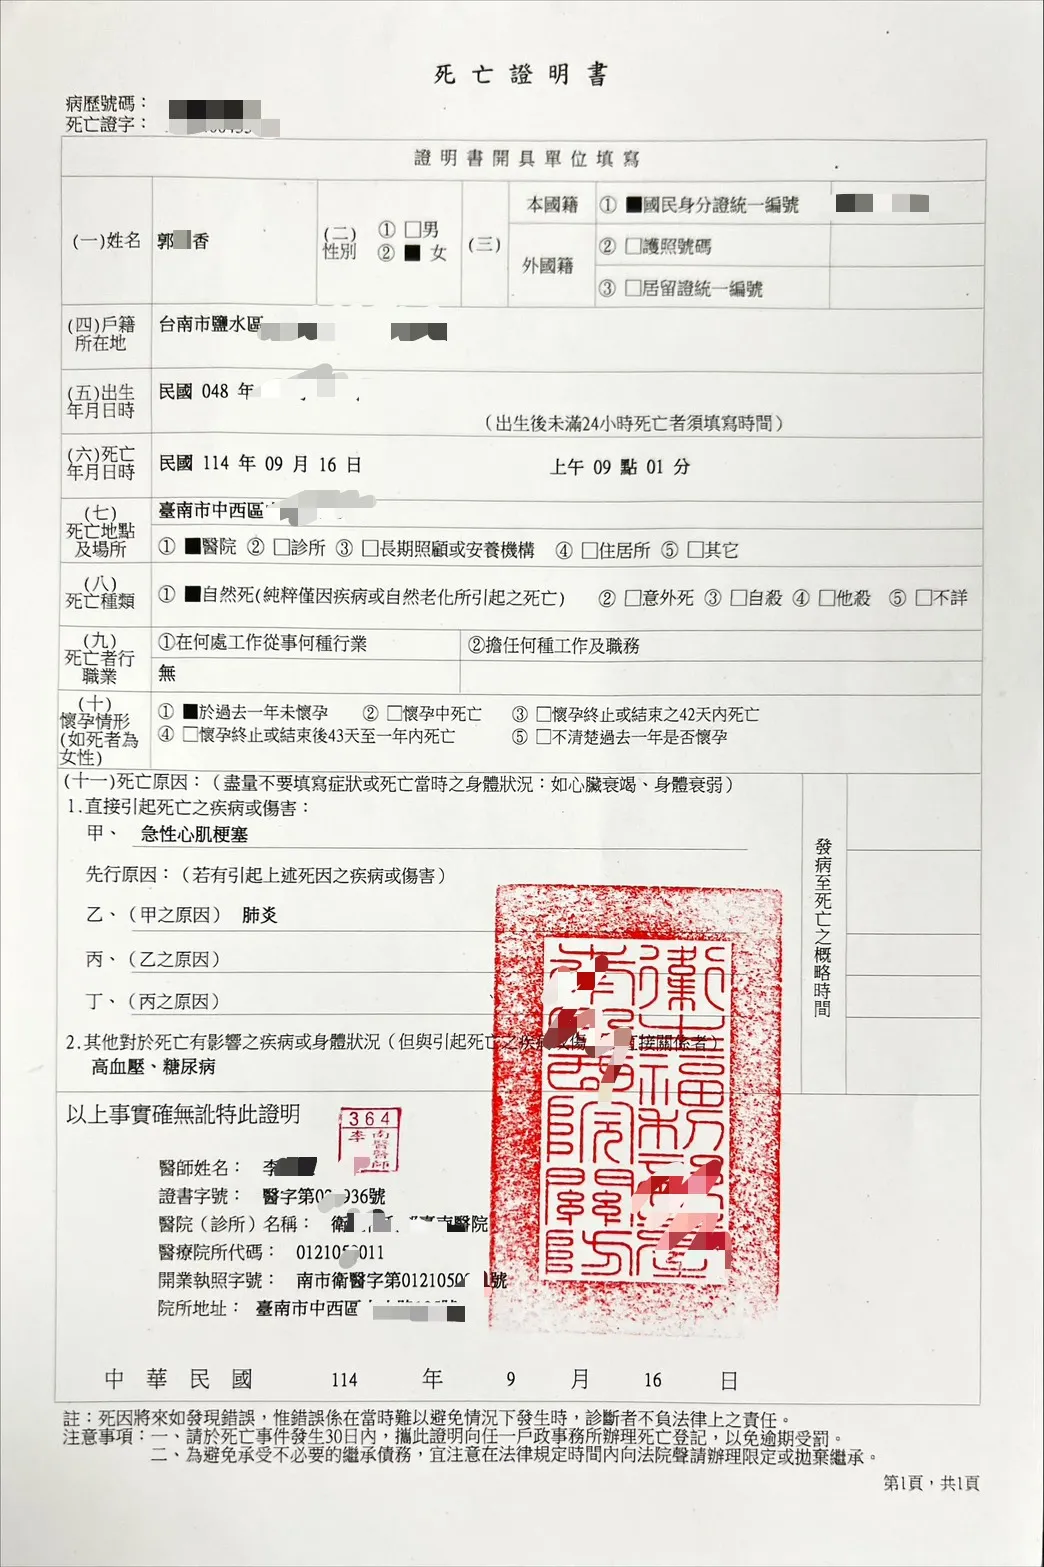 死亡證明書
病歷號碼：
死亡證字：
證明書開具單位填寫
(一)姓名 郭 香 (二)性別 ① □男 ② ■ 女 (三) 本國籍 ① ■國民身分證統一編號
外國籍 ② □護照號碼
③ □居留證統一編號
(四)戶籍所在地 台南市鹽水區
(五)出生年月日時 民國 048 年
(出生後未滿24小時死亡者須填寫時間)
(六)死亡年月日時 民國 114 年 09 月 16 日 上午 09 點 01 分
(七)死亡地點及場所 臺南市中西區
① ■醫院 ② □診所 ③ □長期照顧或安養機構 ④ □住居所 ⑤ □其它
(八)死亡種類 ① ■自然死(純粹僅因疾病或自然老化所引起之死亡) ② □意外死 ③ □自殺 ④ □他殺 ⑤ □不詳
(九)死亡者行職業 ①在何處工作從事何種行業 ②擔任何種工作及職務
無
(十)懷孕情形(如死者為女性) ① ■於過去一年未懷孕 ② □懷孕中死亡 ③ □懷孕終止或結束之42天內死亡
④ □懷孕終止或結束後43天至一年內死亡 ⑤ □不清楚過去一年是否懷孕
(十一)死亡原因：(盡量不要填寫症狀或死亡當時之身體狀況：如心臟衰竭、身體衰弱)
1.直接引起死亡之疾病或傷害：
甲、 急性心肌梗塞
發病至死亡之概略時間
先行原因：(若有引起上述死因之疾病或傷害)
乙、(甲之原因) 肺炎
丙、(乙之原因)
丁、(丙之原因)
2.其他對於死亡有影響之疾病或身體狀況(但與引起死亡之疾病或傷 直接關係者)
高血壓、糖尿病
以上事實確無訛特此證明
364
南醫醫師
李
醫師姓名： 李
證書字號： 醫字第0 936號
醫院（診所）名稱： 衛 臺南醫院
醫療院所代碼： 01210 011
開業執照字號： 南市衛醫字第0121050 號
院所地址： 臺南市中西區
中華民國 114 年 9 月 16 日
註：死因將來如發現錯誤，惟錯誤係在當時難以避免情況下發生時，診斷者不負法律上之責任。
注意事項：一、請於死亡事件發生30日內，攜此證明向任一戶政事務所辦理死亡登記，以免逾期受罰。
二、為避免承受不必要的繼承債務，宜注意在法律規定時間內向法院聲請辦理限定或拋棄繼承。
第1頁，共1頁